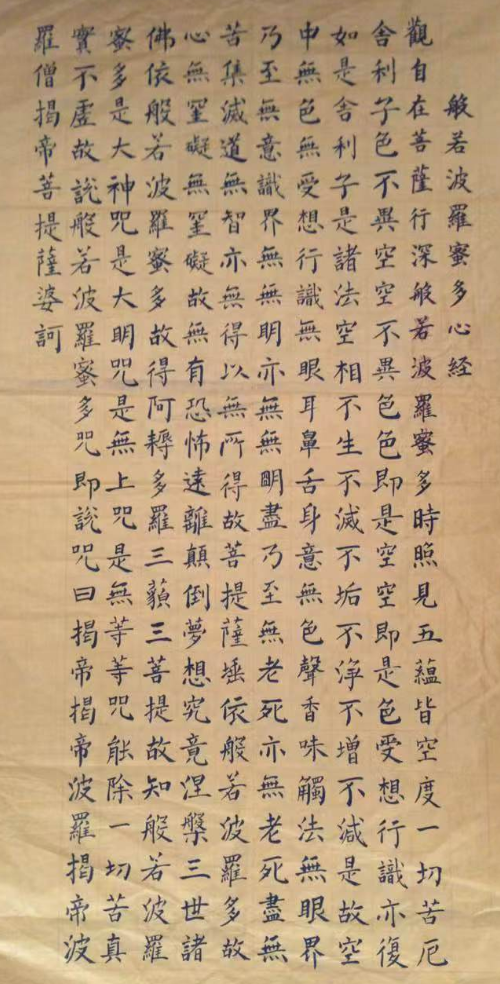 般若波羅蜜多心経
觀自在菩薩行深般若波羅蜜多時照見五蘊皆空度一切苦厄
舍利子色不異空空不異色色即是空空即是色受想行識亦復
如是舍利子是諸法空相不生不滅不垢不淨不增不減是故空
中無色無受想行識無眼耳鼻舌身意無色聲香味觸法無眼界
乃至無意識界無無明亦無無明盡乃至無老死亦無老死盡無
苦集滅道無智亦無得以無所得故菩提薩埵依般若波羅多故
心無罣礙無罣礙故無有恐怖遠離顛倒夢想究竟涅槃三世諸
佛依般若波羅蜜多故得阿耨多羅三藐三菩提故知般若波羅
蜜多是大神咒是大明咒是無上咒是無等等咒能除一切苦真
實不虛故說般若波羅蜜多咒即說咒曰揭帝揭帝波羅揭帝波
羅僧揭帝菩提薩婆訶